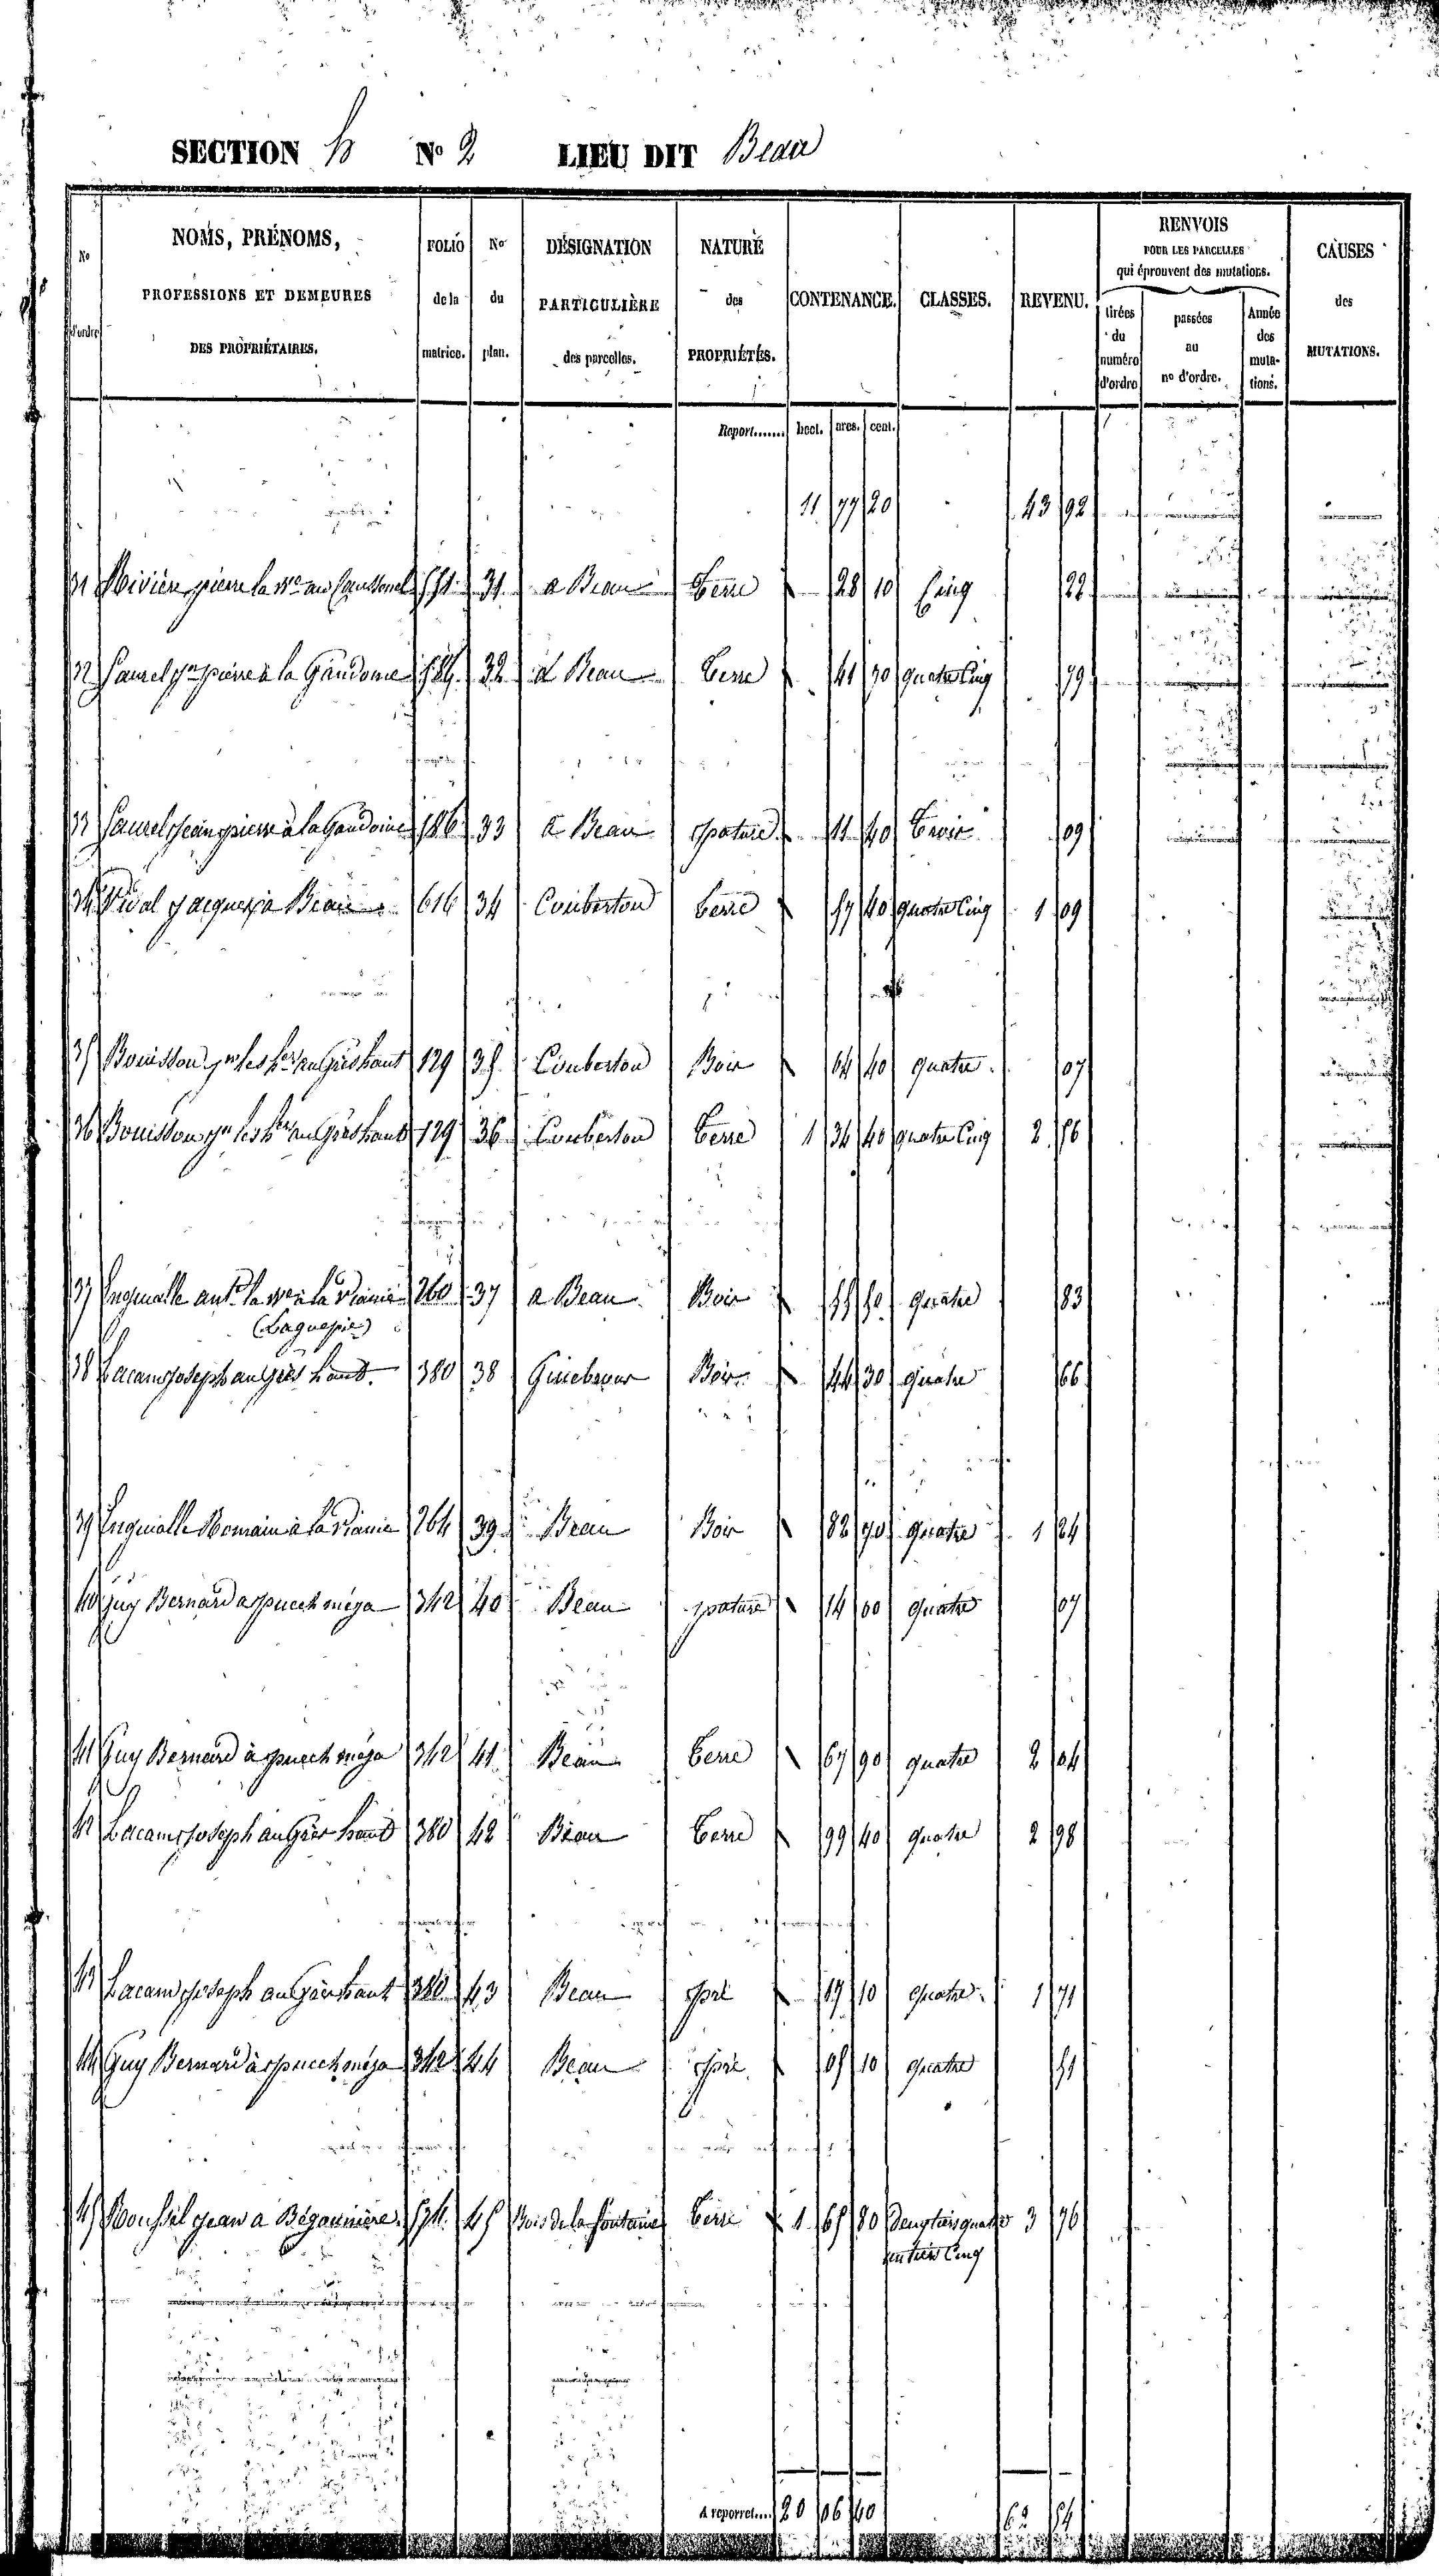 SECTION h No 2 LIEU DIT Beau
No d'ordre
NOMS, PRÉNOMS, PROFESSIONS ET DEMEURES DES PROPRIÉTAIRES.
FOLIO de la matrice.
No du plan.
DÉSIGNATION PARTICULIÈRE des parcelles.
NATURE des PROPRIÉTÉS.
CONTENANCE.
CLASSES.
REVENU.
RENVOIS POUR LES PARCELLES qui éprouvent des mutations.
tirées du numéro d'ordre
passées au no d'ordre.
Année des mutations.
CAUSES des MUTATIONS.
Report....... hect. ares. cent.
11 77 20 43 92
31 Rivière pierre la ve au 571 31 a Beau Terre 28 10 Cinq 22
32 Saurel jn pierre à la Gaudonie 586 32 a Beau Terre 41 30 quatre Cinq 79
33 Saurel jean pierre à la Gaudonie 586 33 a Beau pature 11 40 Trois 09
34 Vidal jacques à Beau 616 34 Couberton Terre 57 40 quatre Cinq 1 09
35 Bouisson jn les hers au Grès haut 129 35 Couberton Bois 04 40 quatre 07
36 Bouisson jn les hers au Grès haut 129 36 Couberton Terre 1 34 40 quatre Cinq 2 56
37 ant. la ve à la Vianie 360 37 a Beau Bois 55 50 quatre 83
(Laguepie)
38 Lacam joseph au Grès haut 380 38 Bois 44 30 quatre 66
39 Romain à la Vianie 364 39 Beau Bois 82 90 quatre 1 24
40 Guy Bernard a puech méja 342 40 Beau pature 14 00 quatre 07
41 Guy Bernard à puech méja 342 41 Beau Terre 67 90 quatre 2 04
42 Lacam joseph au Grès haut 380 42 Beau Terre 99 40 quatre 2 98
43 Lacam joseph au Grès haut 380 43 Beau pré 17 10 quatre 1 71
44 Guy Bernard à puech méja 342 44 Beau pré 05 10 quatre 51
45 jean a 574 45 Bois de la fontaine Terre 1 65 80 Deux tiers quatre 3 76
un tiers Cinq
A reporter.... 20 06 40 62 54